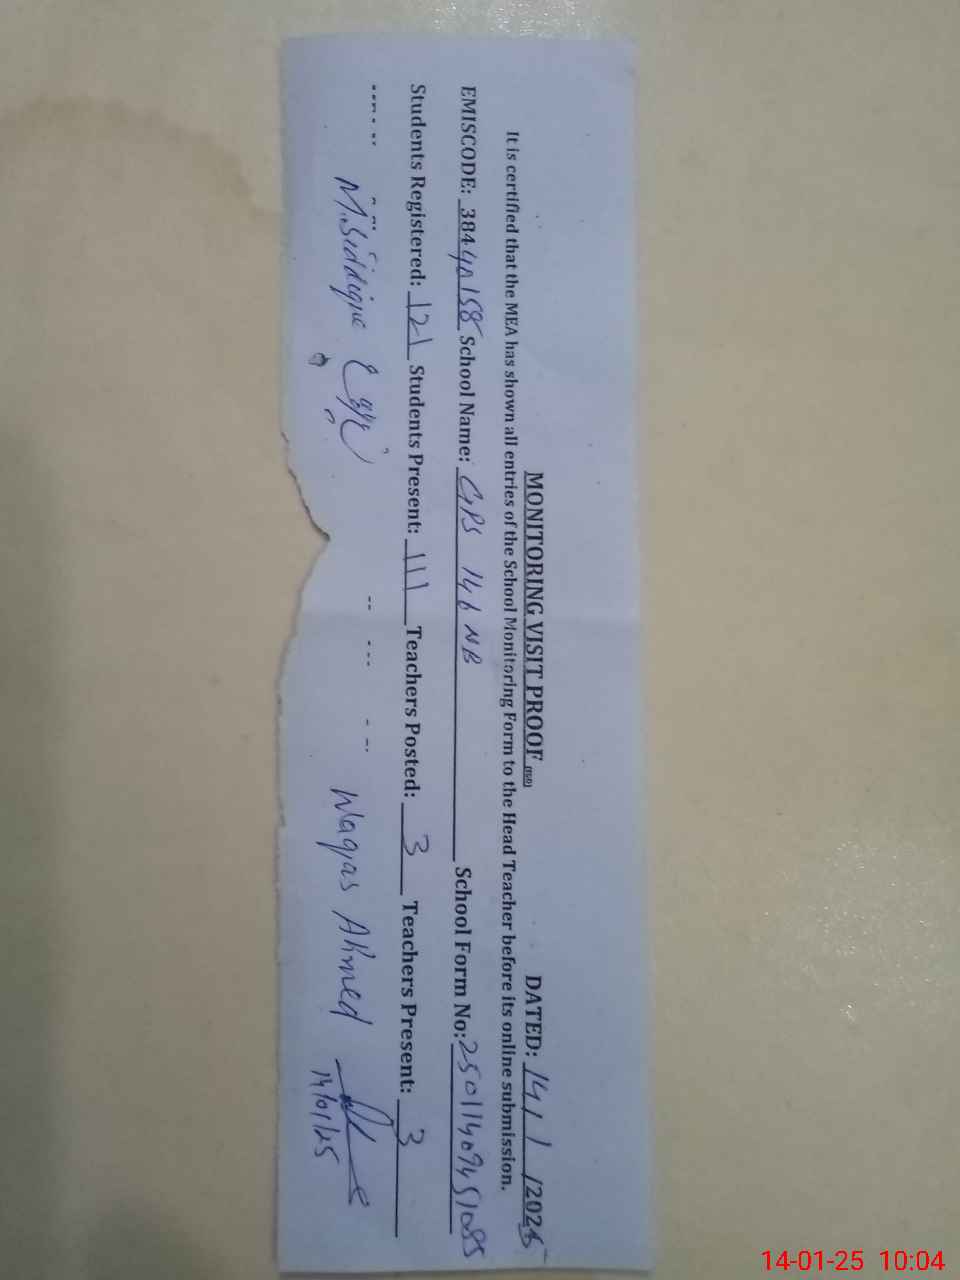 MONITORING VISIT PROOF DATED: 14/1/2025
It is certified that the MEA has shown all entries of the School Monitoring Form to the Head Teacher before its online submission.
EMISCODE: 38440158 School Name: GPS 146 NB School Form No: 25011409451085
Students Registered: 121 Students Present: 111 Teachers Posted: 3 Teachers Present: 3
M.Siddique Waqas Ahmed
14/01/25
14-01-25 10:04